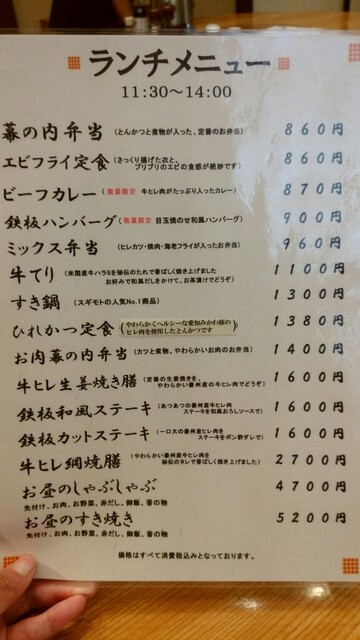 ランチメニュー
11:30～14:00
幕の内弁当 (とんかつと煮物が入った、定番のお弁当) 860円
エビフライ定食 (さっくり揚げた衣と、プリプリのエビの食感が絶妙です) 860円
ビーフカレー (数量限定 牛ヒレ肉がたっぷり入ったカレー) 870円
鉄板ハンバーグ (数量限定 目玉焼のせ和風ハンバーグ) 900円
ミックス弁当 (ヒレカツ・焼肉・海老フライが入ったお弁当) 960円
牛てり (米国産牛ハラミを秘伝のたれで香ばしく焼き上げました お好みで和風だしをかけて、お茶漬けでどうぞ) 1100円
すき鍋 (スギモトの人気No.1商品) 1300円
ひれかつ定食 (やわらかくヘルシーな愛知みかわ豚のヒレ肉を使用したとんかつです) 1380円
お肉幕の内弁当 (カツと煮物、やわらかいお肉のお弁当) 1400円
牛ヒレ生姜焼き膳 (定番の生姜焼きを、やわらかい豪州産の牛ヒレ肉でどうぞ) 1600円
鉄板和風ステーキ (あつあつの豪州産牛ヒレ肉ステーキを和風おろしソースで) 1600円
鉄板カットステーキ (一口大の豪州産ヒレ肉をステーキをポン酢ダレで) 1600円
牛ヒレ網焼膳 (やわらかい豪州産牛ヒレ肉を秘伝のタレで香ばしく焼き上げました) 2700円
お昼のしゃぶしゃぶ 4700円
先付け、お肉、お野菜、赤だし、御飯、香の物
お昼のすき焼き 5200円
先付け、お肉、お野菜、赤だし、御飯、香の物
価格はすべて消費税込みとなっております。